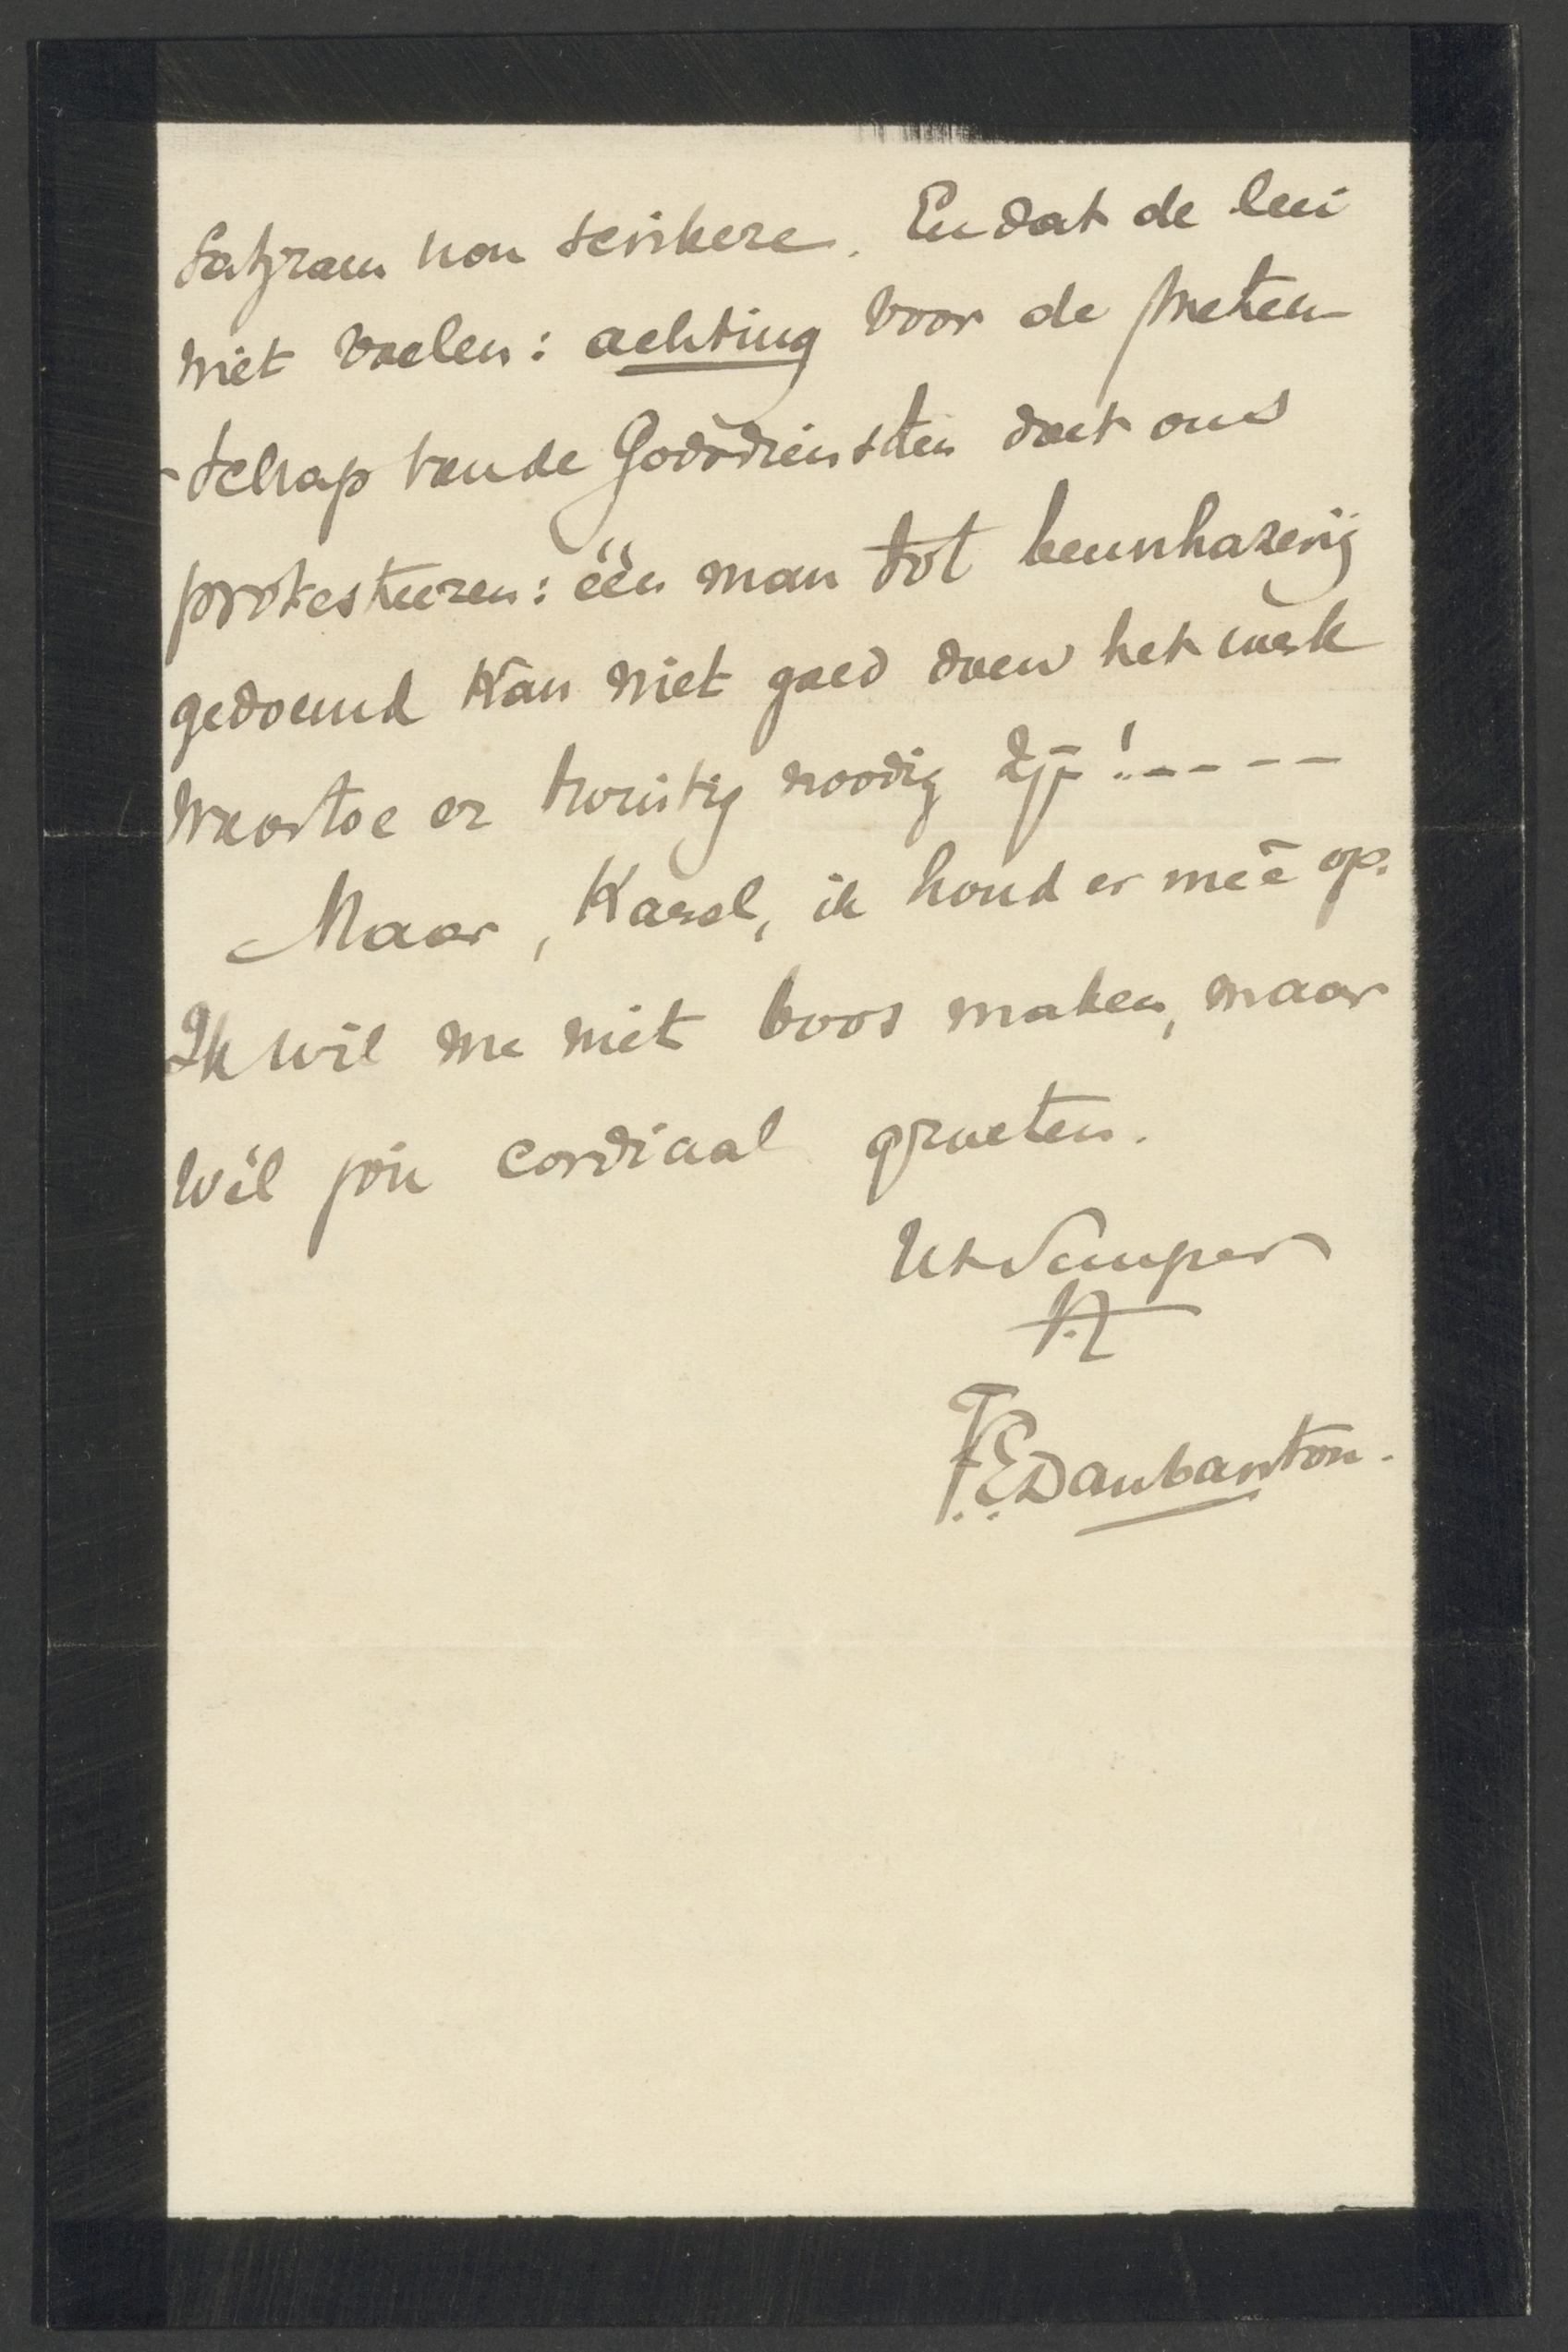 Satyram non scribere. En dat de lui
niet voelen: achting voor de weten-
-schap van de Godsdiensten doet ons
protesteeren: één man tot beunhazerij
gedoemd kan niet goed doen het werk
waartoe er twintig noodig zijn!-----
Maar, Karel, ik houd er meê op.
Ik wil me niet boos maken, maar
wil jou cordiaal groeten.
Ut Semper
F.E. Daubanton.